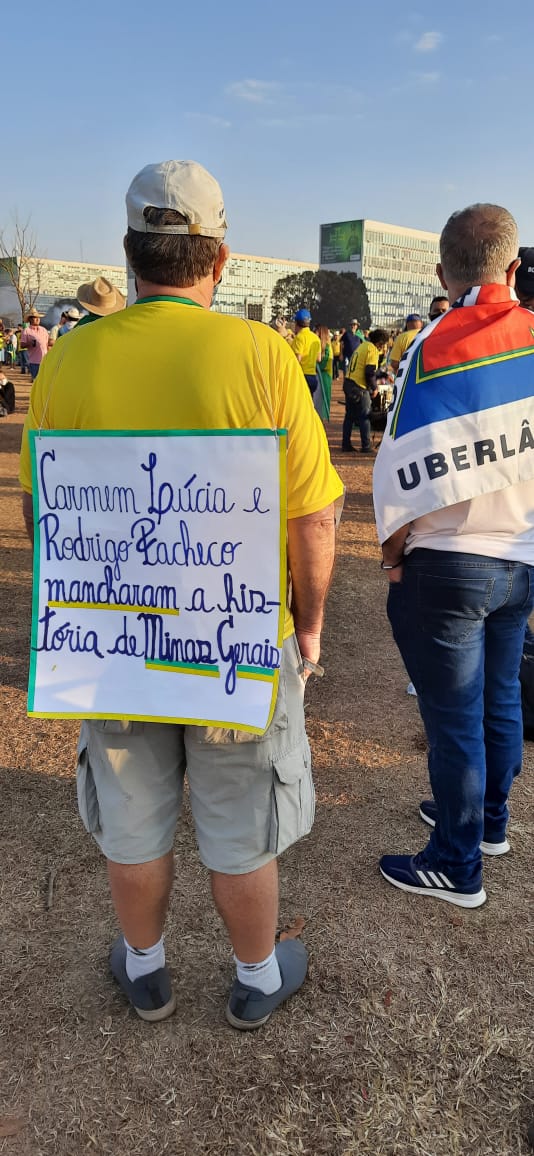 Carmem Lúcia e
Rodrigo Pacheco
mancharam a his-
tória de Minas Gerais
UBERLÂ